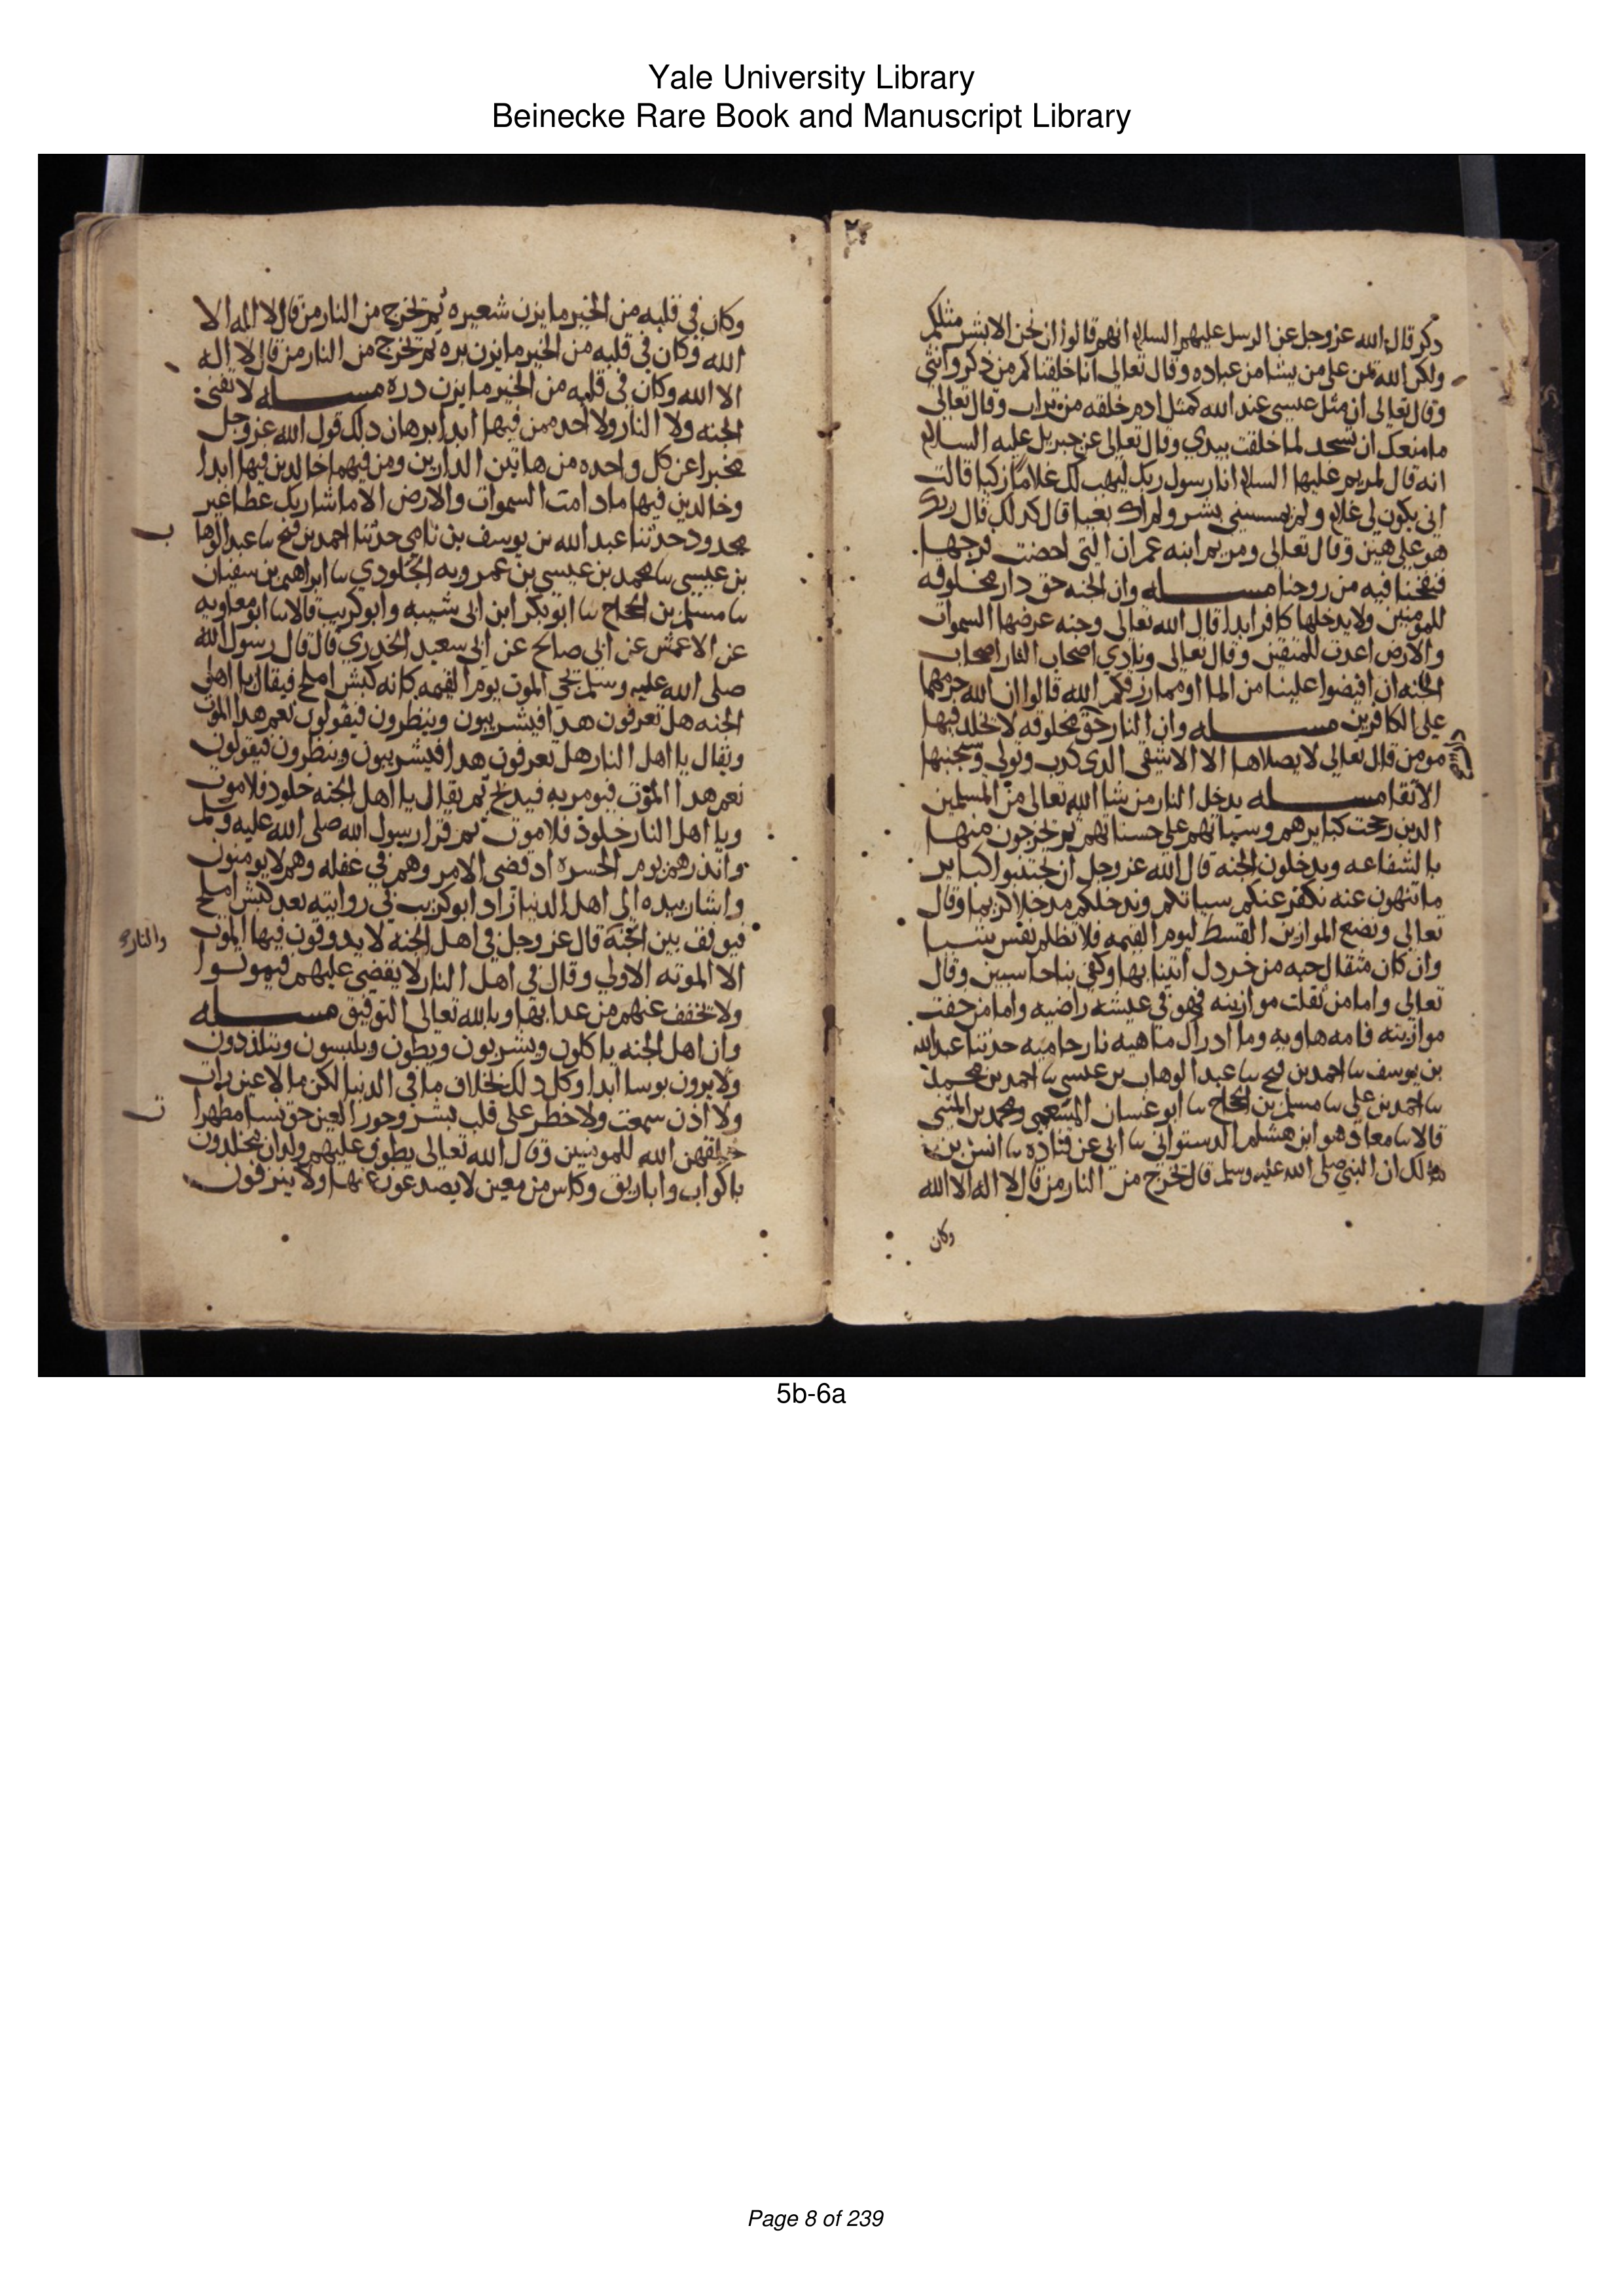 Yale University Library
Beinecke Rare Book and Manuscript Library
دكر قال الله عز وجل عن الرسل عليهم السلام انهم قالوا ان نحن الا بشر مثلكم
ولكن الله يمن على من يشا من عباده وقال تعالى انا خلقناكم من دكر وانثى
وقال تعالى ان مثل عيسى عند الله كمثل ادم خلقه من تراب وقال تعالى
ما منعك ان تسجد لما خلقت بيدي وقال تعالى عن جبريل عليه السلام
انه قال لمريم عليها السلام انا رسول ربك ليهب لك غلاما زكيا قالت
انى يكون لي غلام ولم يمسسني بشر ولم اك بغيا قال كدلك قال ربك
هو على هين وقال تعالى ومريم ابنه عمران التي احصنت فرجها
فنفخنا فيه من روحنا مسـله وان الجنه حق دار مخلوقه
للمومنين ولا يدخلها كافر ابدا قال الله تعالى وجنه عرضها السموات
والارض اعدت للمتقين وقال تعالى ونادى اصحاب النار اصحاب
الجنه ان افيضوا علينا من الما او مما رزقكم الله قالوا ان الله حرمهما
على الكافرين مسـله وان النار حق مخلوقه لا يخلد فيها
مومن قال تعالى لا يصلاها الا الاشقى الدي كدب وتولى وسيجنبها
الاتقا مسـله يدخل النار من شا الله تعالى من المسلمين
الدين رجحت كبايرهم وسياتهم على حسناتهم ثم يخرجون منها
بالشفاعه ويدخلون الجنه قال الله عز وجل ان تجتنبوا كباير
ما تنهون عنه نكفر عنكم سياتكم وندخلكم مدخلا كريما وقال
تعالى ونضع الموازين القسط ليوم القيمه فلا تظلم نفس شيا
وان كان مثقال حبه من خردل اتينا بها وكفى بنا حاسبين وقال
تعالى واما من ثقلت موازينه فهو في عيشه راضيه واما من خفت
موازينه فامه هاويه وما ادراك ما هيه نار حاميه حدثنا عبد الله
بن يوسف سا احمد بن فتح سا عبد الوهاب بن عيسى سا احمد بن محمد
سا احمد بن علي سا مسلم بن الحجاج سا ابو غسان المسمعي ومحمد بن المثنى
قالا سا معاد هو ابن هشام الدستواني سا ابي عن قتاده سا انس بن
مالك ان النبي صلى الله عليه وسلم قال يخرج من النار من قال لا اله الا الله
وكان
وكان في قلبه من الخير ما يزن شعيره ثم يخرج من النار من قال لا اله الا
الله وكان في قلبه من الخير ما يزن بره ثم يخرج من النار من قال لا اله
الا الله وكان في قلبه من الخير ما يزن دره مسـله لا تفنى
الجنه ولا النار ولا احد ممن فيهما ابدا برهان دلك قول الله عز وجل
مخبرا عن كل واحده من هاتين الدارين ومن فيهما خالدين فيها ابدا
وخالدين فيها ما دامت السموات والارض الا ما شا ربك عطا غير
مجدود حدثنا عبد الله بن يوسف بن نامي حدثنا احمد بن فتح سا عبد الوها
ب
بن عيسى سا محمد بن عيسى بن عمرويه الجلودي سا ابراهيم بن سفيان
سا مسلم بن الحجاج سا ابو بكر ابن ابى شيبه وابو كريب قالا سا ابو معاويه
عن الاعمش عن ابي صالح عن ابى سعيد الخدري قال قال رسول الله
صلى الله عليه وسلم يجي الموت يوم القيمه كانه كبش املح فيقال يا اهل
الجنه هل تعرفون هدا فيشريبون وينظرون فيقولون نعم هدا الموت
ويقال يا اهل النار هل تعرفون هدا فيشريبون وينظرون فيقولون
نعم هدا الموت فيومر به فيدبح ثم يقال يا اهل الجنه خلود فلا موت
ويا اهل النار خلود فلا موت ثم قرا رسول الله صلى الله عليه وسلم
وانذرهم يوم الحسره اد قضى الامر وهم في غفله وهم لا يومنون
واشار بيده الى اهل الدنيا زاد ابو كريب في روايته بعد كبش املح
فيوقف بين الجنه قال عز وجل في اهل الجنه لا يدوقون فيها الموت
والنار
الا الموته الاولى وقال في اهل النار لا يقضى عليهم فيموتوا
ولا يخفف عنهم من عدابها وبالله تعالى التوفيق مسـله
وان اهل الجنه ياكلون ويشربون ويطون ويلبسون ويتلذذون
ولا يرون بوسا ابدا وكل دلك بخلاف ما في الدنيا لكن ما لا عين رات
ولا اذن سمعت ولا خطر على قلب بشر وحور العين حق نسا مطهرا
ت
خلقهن الله للمومنين وقال الله تعالى يطوف عليهم ولدان مخلدون
باكواب واباريق وكاس من معين لا يصدعون عنها ولا ينزفون
5b-6a
Page 8 of 239